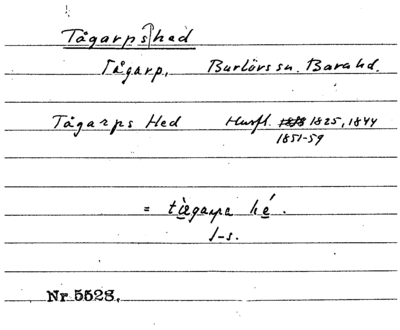 Tågarps hed
Tågarp, Burlövs sn. Bara hd.
Tågarps Hed Husfl. 1825, 1844
1851-59
= tìegarpa hé.
J-s.
Nr 5528.